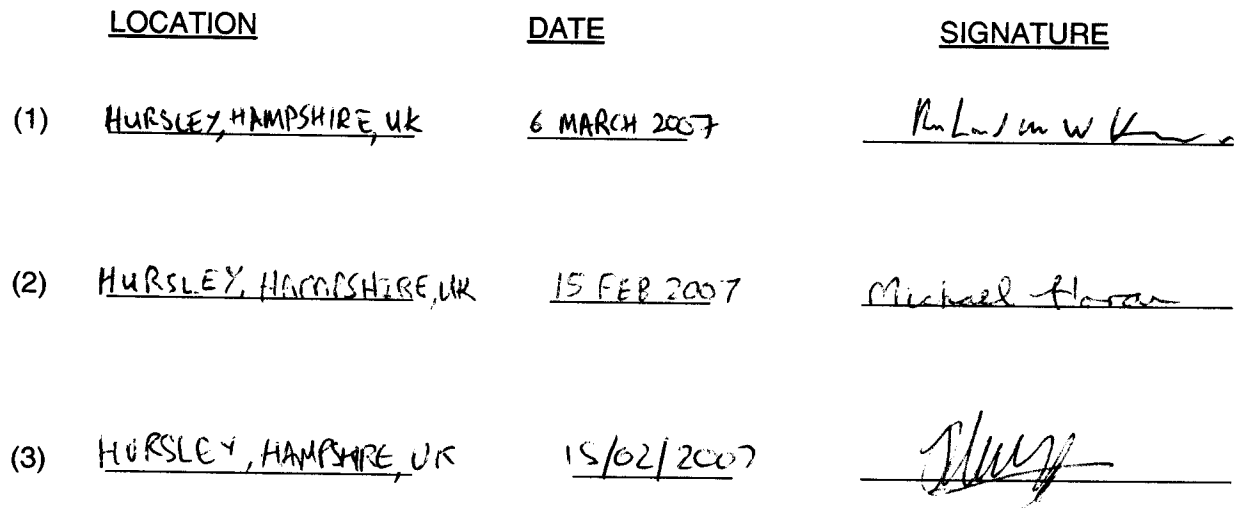 LOCATION DATE SIGNATURE
(1) HURSLEY, HAMPSHIRE, UK 6 MARCH 2007
(2) HURSLEY, HAMPSHIRE, UK 15 FEB 2007 Michael Horan
(3) HURSLEY, HAMPSHIRE, UK 15/02/2007